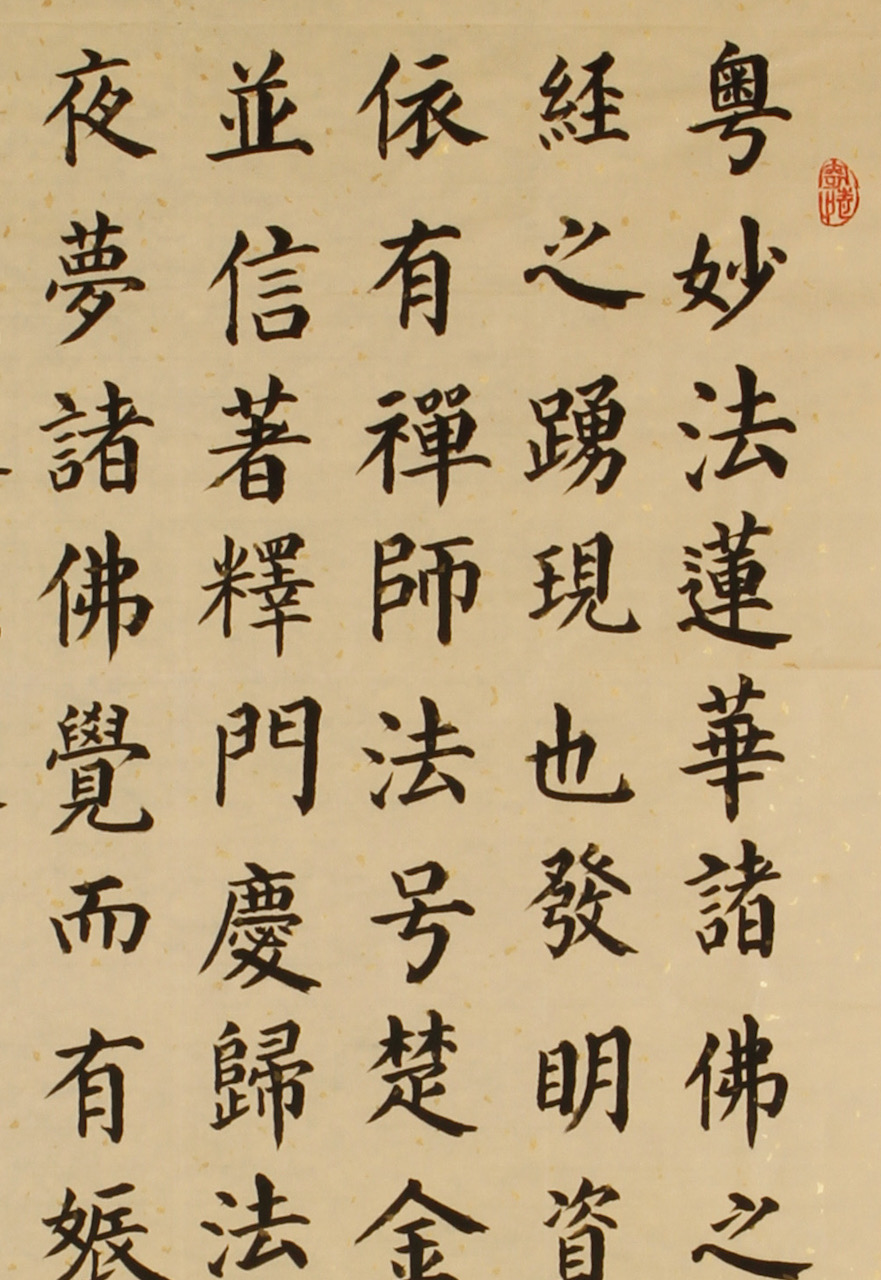 粤妙法蓮華諸佛之
経之踴現也發明資
依有禪師法号楚金
並信著釋門慶歸法
夜夢諸佛覺而有娠